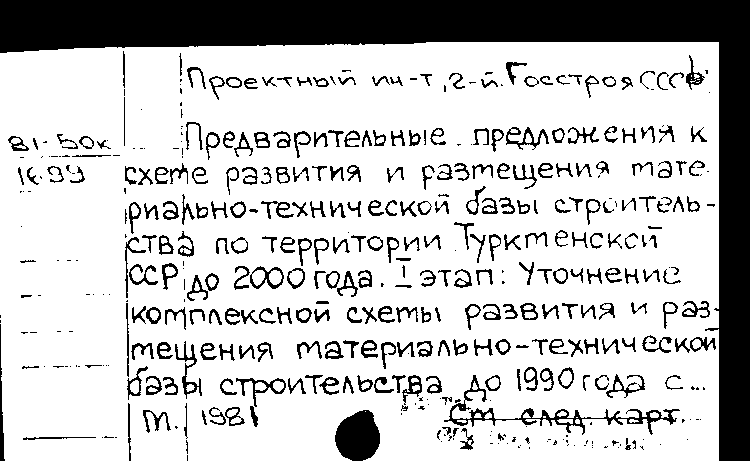 Проектный ин-т, 2-й. Госстроя СССР
81-50к
16.99
Предварительные предложения к
схеме развития и размещения мате
риально-технической базы строитель-
ства по территории Туркменской
ССР до 2000 года. I этап: Уточнение
комплексной схемы развития и раз-
мещения материально-технической
базы строительства до 1990 года с...
М., 1981
См. след. карт.